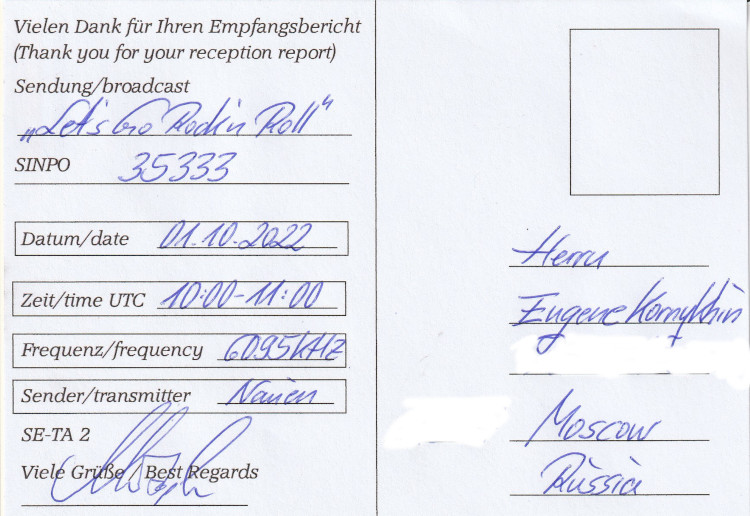 Vielen Dank für Ihren Empfangsbericht
(Thank you for your reception report)
Sendung/broadcast
„Let's Go Rock'n Roll“
SINPO 35333
Datum/date 01.10.2022
Zeit/time UTC 10:00-11:00
Frequenz/frequency 6095 kHz
Sender/transmitter Nauen
SE-TA 2
Viele Grüße / Best Regards
Herrn
Eugene
Moscow
Russia